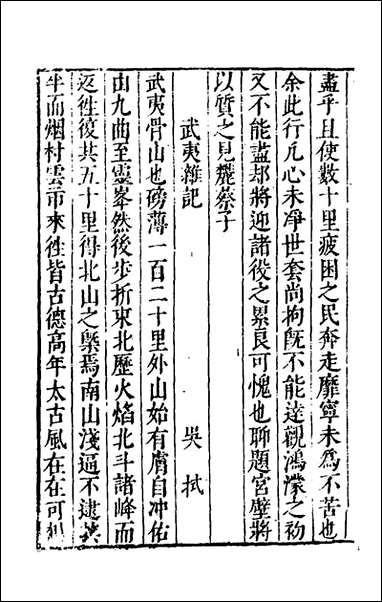 盡乎且使數十里疲困之民奔走靡寧未為不苦也
余此行凡心未淨世套尚拘旣不能達觀鴻濛之初
又不能盡却將迎諸役之累良可愧也聊題宮壁將
以質之見蘿蔡子
武夷雜記　吳拭
武夷骨山也磅薄一百二十里外山始有膚自冲佑
由九曲至靈峯然後步折東北歷火焰北斗諸峰而
返徃復共五十里得北山之槩焉南山淺逼不逮其
半而烟村雲市來徃皆古德高年太古風在在可